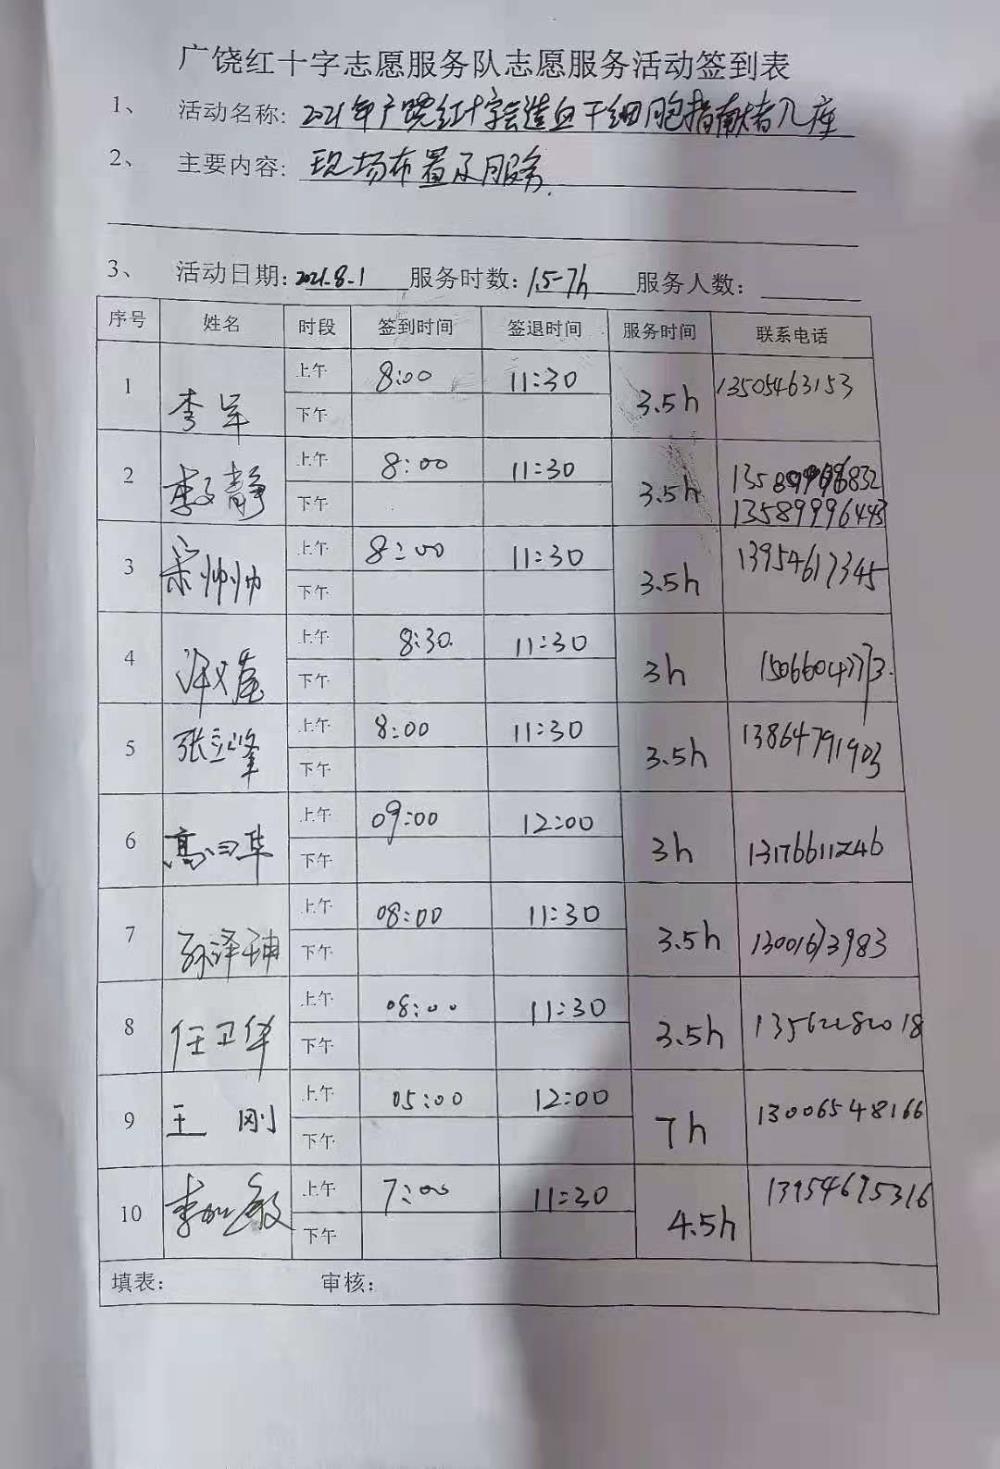 广饶红十字志愿服务队志愿服务活动签到表
1、 活动名称: 2021年广饶红十字会造血干细胞捐献者入库
2、 主要内容: 现场布置及服务.
3、 活动日期: 2021.8.1 服务时数: 1.5-7h 服务人数:
序号 姓名 时段 签到时间 签退时间 服务时间 联系电话
1 李军 上午 8:00 11:30 3.5h 13505463153
下午
2 李文静 上午 8:00 11:30 3.5h
下午 13589996443
3 宋帅帅 上午 8:00 11:30 3.5h 13954617345
下午
4 上午 8:30. 11:30 3h 15066047773.
下午
5 张立峰 上午 8:00 11:30 3.5h 13864791903
下午
6 上午 09:00 12:00 3h 13176611246
下午
7 孙泽坤 上午 08:00 11:30 3.5h 13001673983
下午
8 任卫华 上午 08:00 11:30 3.5h 13562282018
下午
9 王刚 上午 05:00 12:00 7h 13006548166
下午
10 上午 7:00 11:30 4.5h 13954695316
下午
填表: 审核: